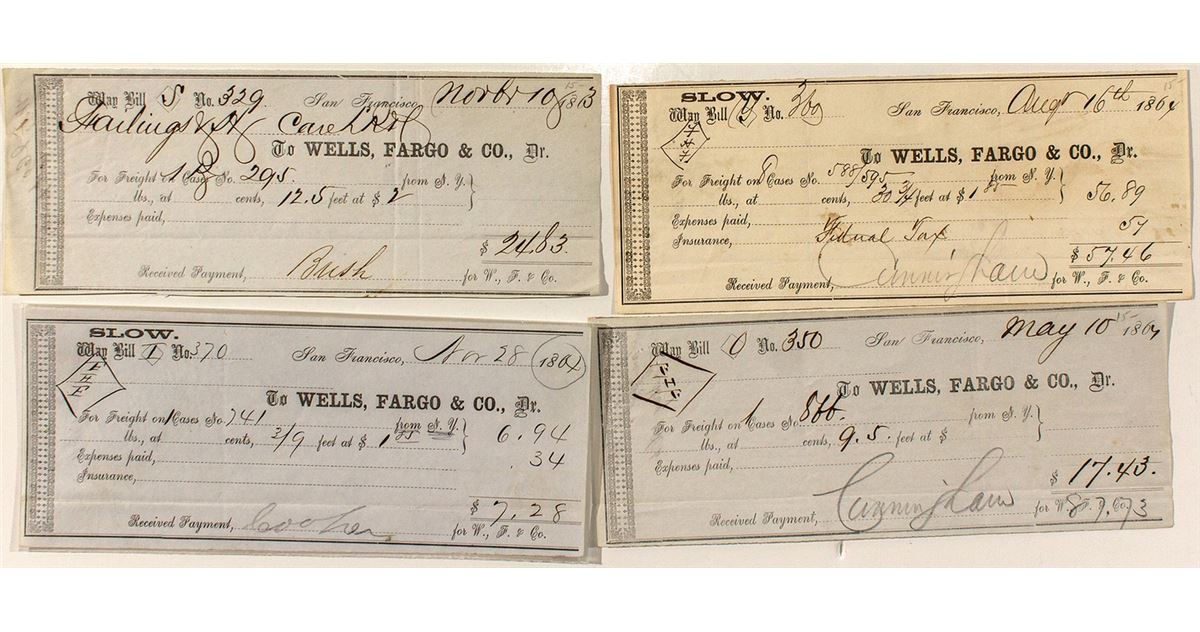 Way Bill S No. 329. San Francisco, Novbr 10 1863
Care
To WELLS, FARGO & CO., Dr.
For Freight on 1 Cases No. 295. from N. Y.
lbs., at cents, 12.5 feet at $ 2
Expenses paid,
$ 24.83
Received Payment, Bush for W., F. & Co.
SLOW.
Way Bill No. 360 San Francisco, Augt 16th 1864
To WELLS, FARGO & CO., Dr.
For Freight on Cases No. 588/595 from N. Y.
lbs., at cents, 30 3/4 feet at $ 1 85 56.89
Expenses paid,
Insurance, Tax 57
$ 57.46
Received Payment, Cunningham for W., F. & Co.
SLOW.
Way Bill I No. 370 San Francisco, Nov 28 1864
To WELLS, FARGO & CO., Dr.
For Freight on 1 Cases No. 741 from N. Y.
lbs., at cents, 3/9 feet at $ 1 85 6.94
Expenses paid, .34
Insurance,
$ 7,28
Received Payment, for W., F. & Co.
Way Bill O No. 350 San Francisco, May 10 1864
To WELLS, FARGO & CO., Dr.
For Freight on 1 Cases No. 866. from N. Y.
lbs., at cents, 9.5. feet at $
Expenses paid,
$ 17.43.
Received Payment, Cunningham for W., F. & Co.
87.73